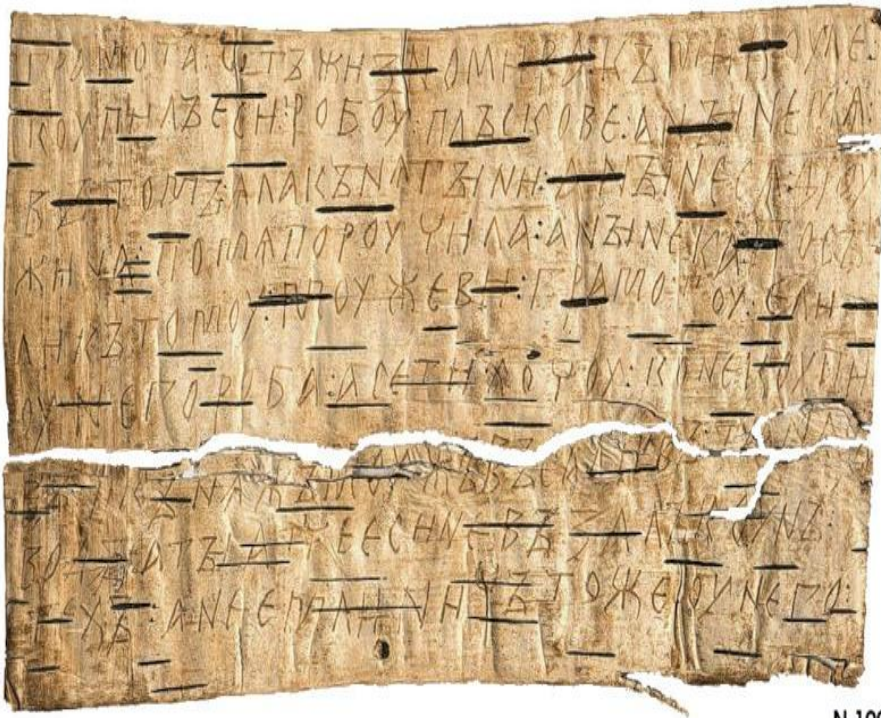 ГРАМОТА : ѠТЪ ЖИЗНОМИРА : КЪ МИКОУЛЕ :
КОУПИЛЪ ЕСИ : РОБОУ : ПЛЪСКОВЕ : А НЫНЕ МѦ :
ВЪ ТОМЪ : ѦЛА КЪНѦГЫНИ : А НЫНЕ СѦ ДРОУ
ЖИНА : ПО МѦ ПОРОУЧИЛА : А НЫНЕ КА : ПОСЪ
ЛИ КЪ ТОМОУ : МОУЖЕВИ : ГРАМОТОУ : ЕЛИ
ОУ НЕГО РОБА : А СЕ ТИ ХОЧОУ : КОНЕ КОУПИ
ВЪ : И КЪНѦЖЪ МОУЖЪ ВЪСАДИВЪ : ТА НА СЪ
ВОДЪ : А ТЫ АТЧЕ ЕСИ НЕ ВЪЗАЛЪ КОУНЪ :
ТЕХЪ : А НЕ ЕМЛИ : НИЧЪТО ЖЕ ОУ НЕГО :